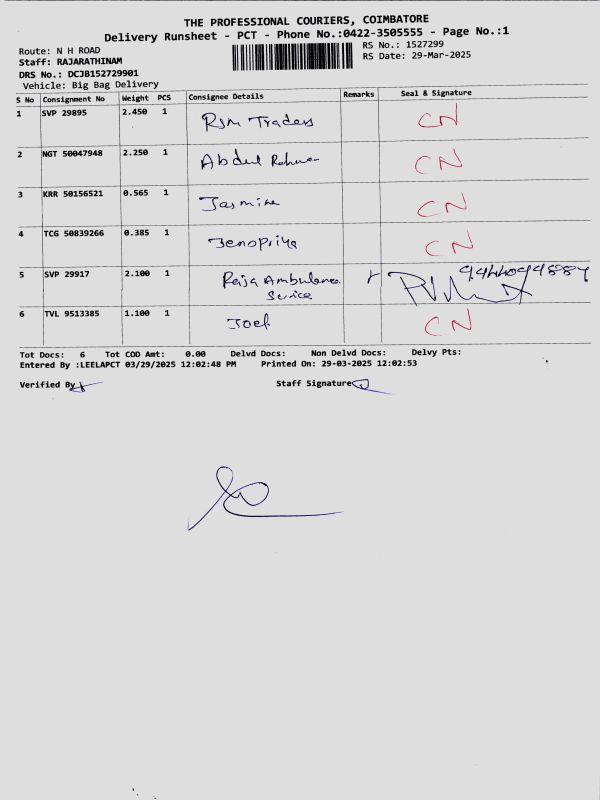 THE PROFESSIONAL COURIERS, COIMBATORE
Delivery Runsheet - PCT - Phone No.:0422-3505555 - Page No.:1
Route: N H ROAD
RS No.: 1527299
Staff: RAJARATHINAM
RS Date: 29-Mar-2025
DRS No.: DCJB152729901
Vehicle: Big Bag Delivery
S No Consignment No Weight PCS Consignee Details Remarks Seal & Signature
1 SVP 29895 2.450 1 RSM Traders CN
2 NGT 50047948 2.250 1 Abdul Rahman CN
3 KRR 50156521 0.565 1 Jasmine CN
4 TCG 50839266 0.385 1 Jenopriya CN
5 SVP 29917 2.100 1 Raja Ambulance
Service
6 TVL 9513385 1.100 1 Joel CN
Tot Docs: 6 Tot COD Amt: 0.00 Delvd Docs: Non Delvd Docs: Delvy Pts:
Entered By :LEELAPCT 03/29/2025 12:02:48 PM Printed On: 29-03-2025 12:02:53
Verified By Staff Signature